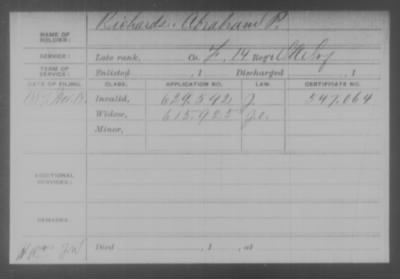 NAME OF SOLDIER: Richards, Abraham P.
SERVICE: Late rank, Co. F, 14 Reg't
TERM OF SERVICE: Enlisted , 1 Discharged , 1
DATE OF FILING. CLASS. APPLICATION NO. LAW. CERTIFICATE NO.
Invalid, 629.542 J. 347.064
Widow, 615.925
Minor,
ADDITIONAL SERVICES:
REMARKS:
Died , 1 , at